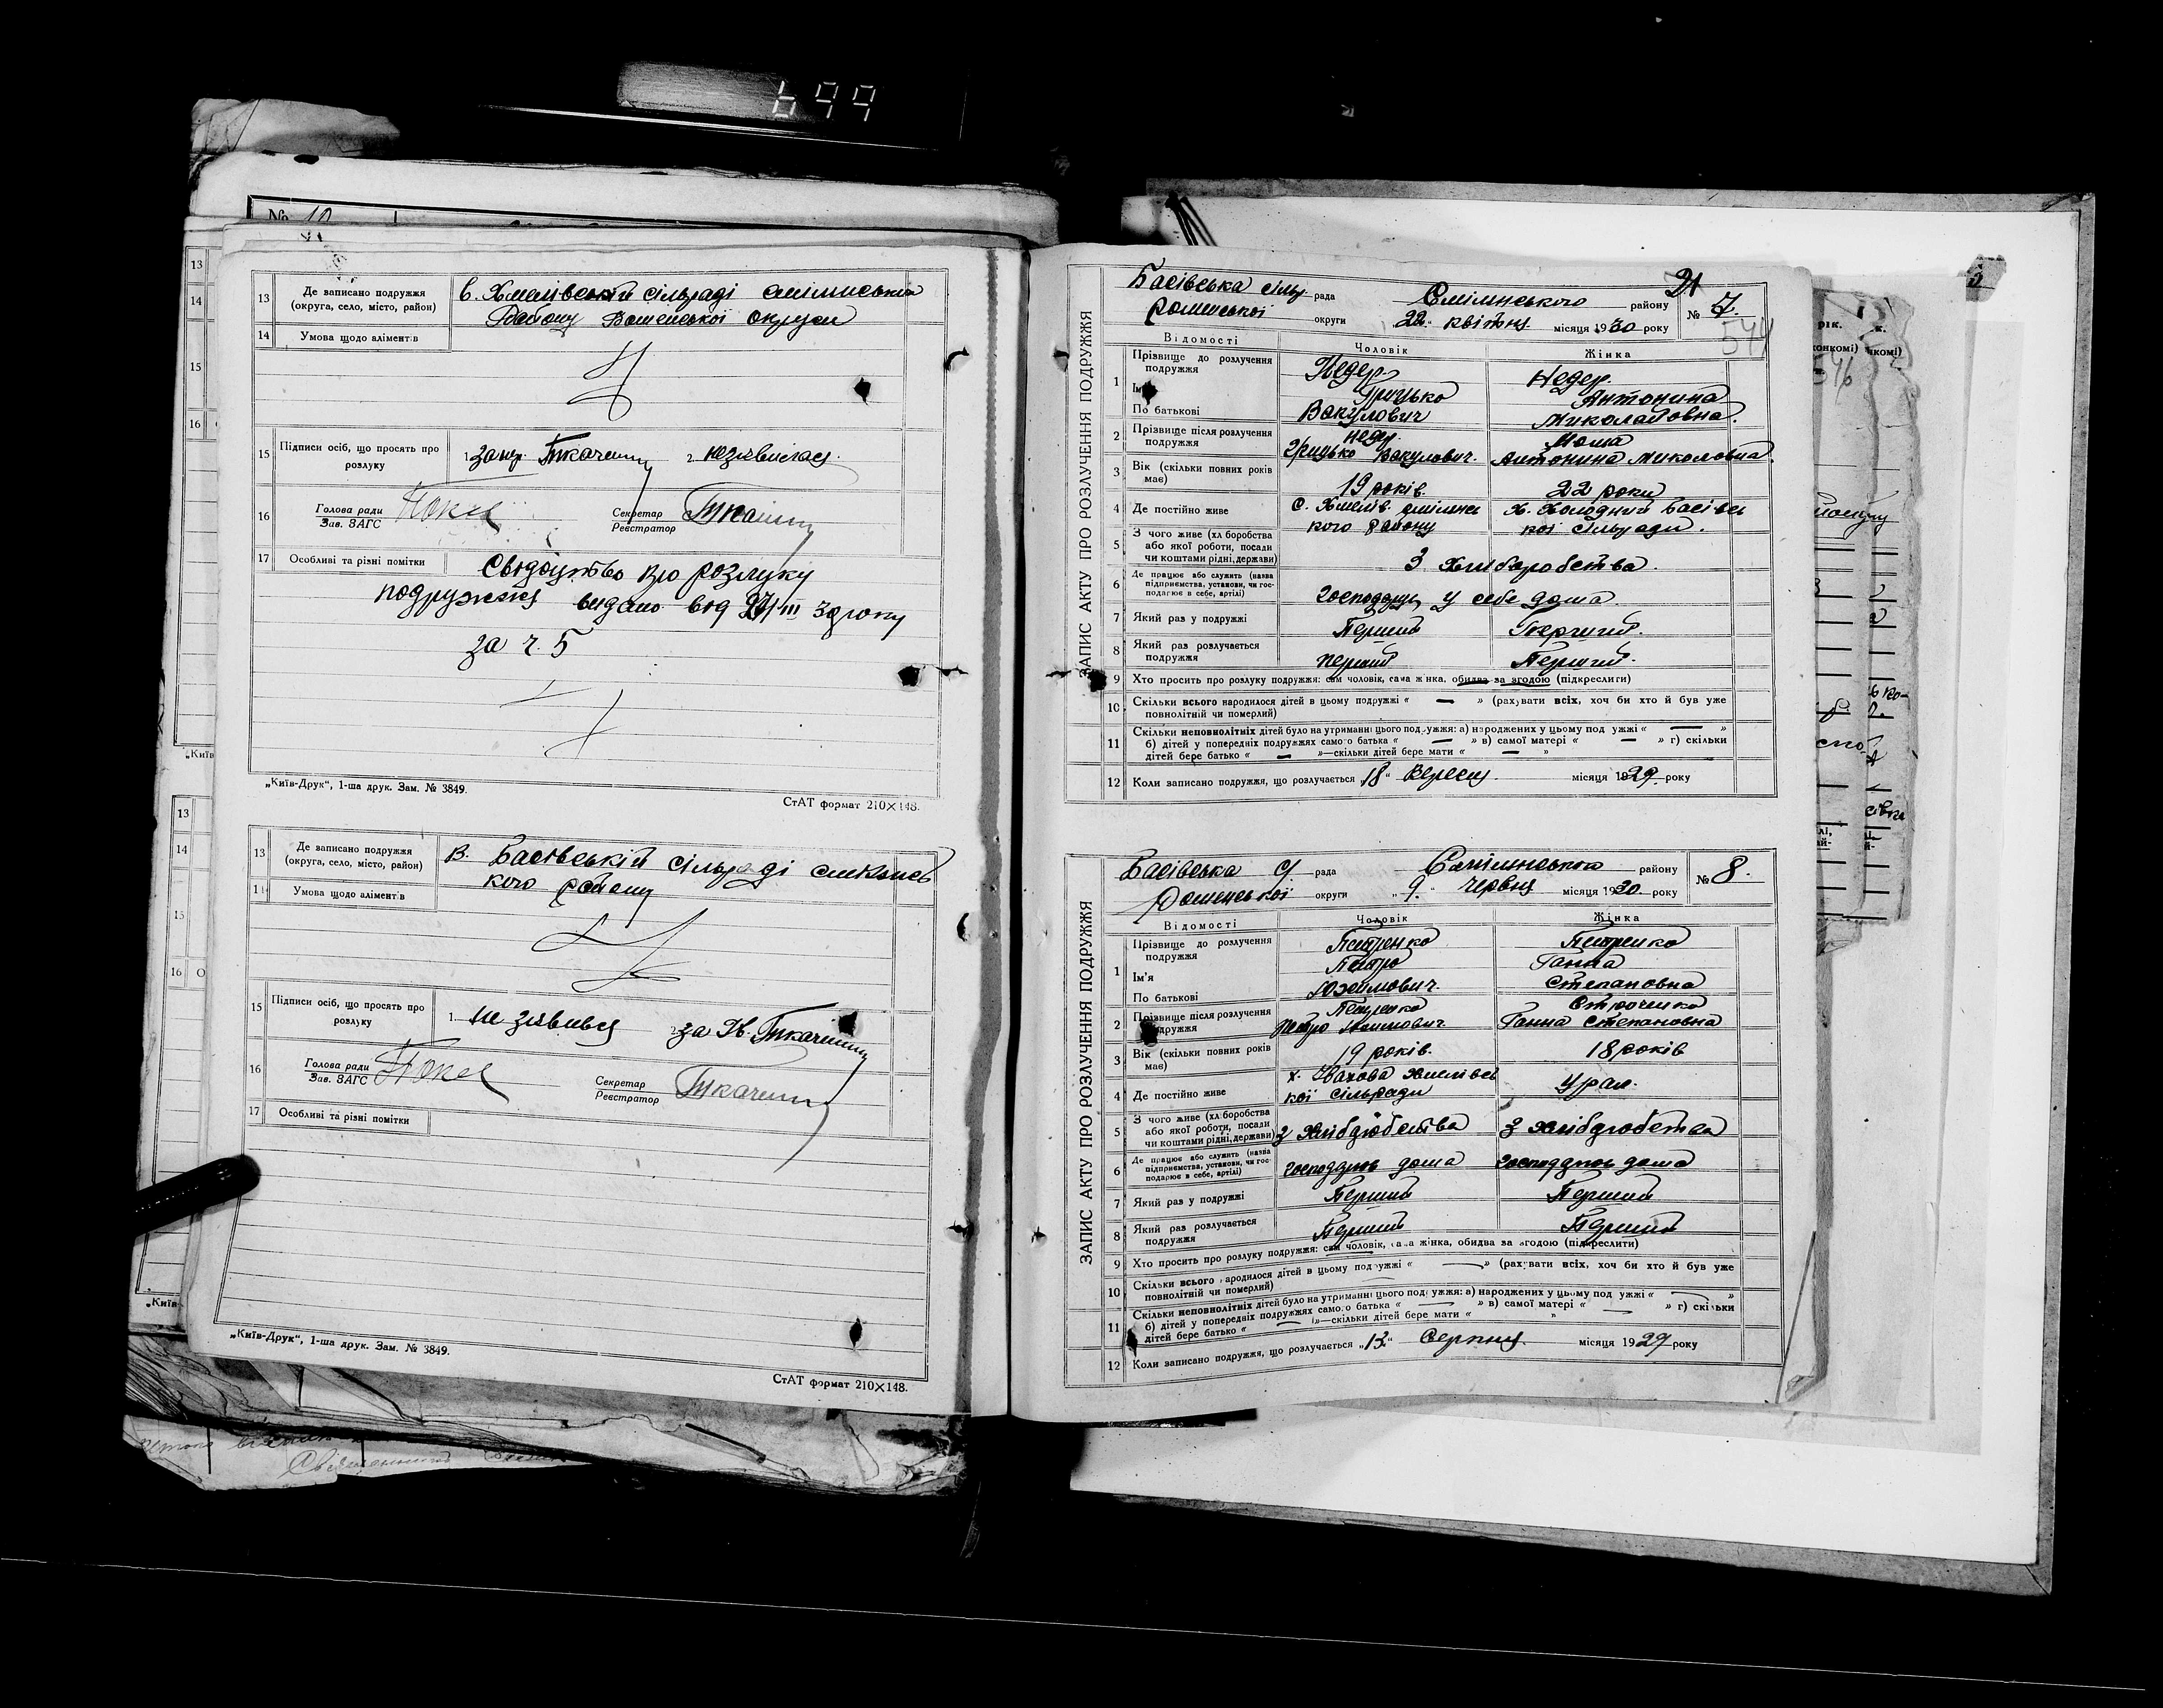 699
№ 10
13 Де записано подружжя (округа, село, місто, район) в. Хмелівській сільраді смілинського
Району Роменської округи
14 Умова щодо аліментів
15 Підписи осіб, що просять про розлуку 1. за нр. Ткаченко 2. не зявилась.
16 Голова ради
Зав. ЗАГС
Секретар
Реєстратор
17 Особливі та різні помітки Свідоцтво про розлуку
подружжя видано від 27/III 30 року
за ч. 5
„Київ-Друк“, 1-ша друк. Зам. № 3849.
СтАТ формат 210×148.
13 Де записано подружжя (округа, село, місто, район) В. Басівській сільраді
кого району
Умова щодо аліментів
15 Підписи осіб, що просять про розлуку 1. не зявився 2. за Ткаченко
16 Голова ради
Зав. ЗАГС
Секретар
Реєстратор Ткаченко
17 Особливі та різні помітки
„Київ-Друк“, 1-ша друк. Зам. № 3849.
СтАТ формат 210×148.
ЗАПИС АКТУ ПРО РОЗЛУЧЕННЯ ПОДРУЖЖЯ
21
Басівська сіль рада Смілянського району № 7.
Роменської округи 22 квітня місяця 1930 року
544
Відомості Чоловік Жінка
1 Прізвище до розлучення подружжя Недер Недер.
Ім'я Грицько Антонина
По батькові Вакулович Миколаєвна.
2 Прізвище після розлучення подружжя Недер Моша
Грицько Вакулович. Антонина Миколовна.
3 Вік (скільки повних років має) 19 років. 22 роки
4 Де постійно живе с. Хмелів. смілянс Х. Холодний Басівсь
кого району кої сільради.
5 З чого живе (хліборобства або якої роботи, посади чи коштами рідні, держави) З хліборобства.
6 Де працює або служить (назва підприємства, установи, чи господарює в себе, артілі) господарює у себе дома.
7 Який раз у подружжі Перший Перший.
8 Який раз розлучається подружжя перший Перший.
9 Хто просить про розлуку подружжя: сам чоловік, сама жінка, обидва за згодою (підкреслити)
10 Скільки всього народилося дітей в цьому подружжі « — » (рахувати всіх, хоч би хто й був уже повнолітній чи померлий)
11 Скільки неповнолітніх дітей було на утриманні цього подружжя: а) народжених у цьому подружжі « — »
б) дітей у попередніх подружжях самого батька « — » в) самої матері « — » г) скільки
дітей бере батько « — »—скільки дітей бере мати « — »
12 Коли записано подружжя, що розлучається „18“ Вересня місяця 1929 року
ЗАПИС АКТУ ПРО РОЗЛУЧЕННЯ ПОДРУЖЖЯ
Басівська с/ рада Смілянського району № 8.
Роменської округи „9“ червня місяця 1930 року
Відомості Чоловік Жінка
1 Прізвище до розлучення подружжя Петренко Петренко
Ім'я Петро Ганна
По батькові Юхимович. Степановна
2 Прізвище після розлучення подружжя Петренко
Петро Юхимович. Ганна Степановна
3 Вік (скільки повних років має) 19 років. 18 років
4 Де постійно живе х. Хмелівсь
кої сільради
5 З чого живе (хліборобства або якої роботи, посади чи коштами рідні, держави) З хліборобства З хліборобства
6 Де працює або служить (назва підприємства, установи, чи господарює в себе, артілі) господарює дома господарює дома
7 Який раз у подружжі Перший Перший
8 Який раз розлучається подружжя Перший Перший
9 Хто просить про розлуку подружжя: сам чоловік, сама жінка, обидва за згодою (підкреслити)
10 Скільки всього народилося дітей в цьому подружжі « — » (рахувати всіх, хоч би хто й був уже повнолітній чи померлий)
11 Скільки неповнолітніх дітей було на утриманні цього подружжя: а) народжених у цьому подружжі « — »
б) дітей у попередніх подружжях самого батька « — » в) самої матері « — » г) скільки
дітей бере батько « — »—скільки дітей бере мати « »
12 Коли записано подружжя, що розлучається „13“ Серпня місяця 1929 року